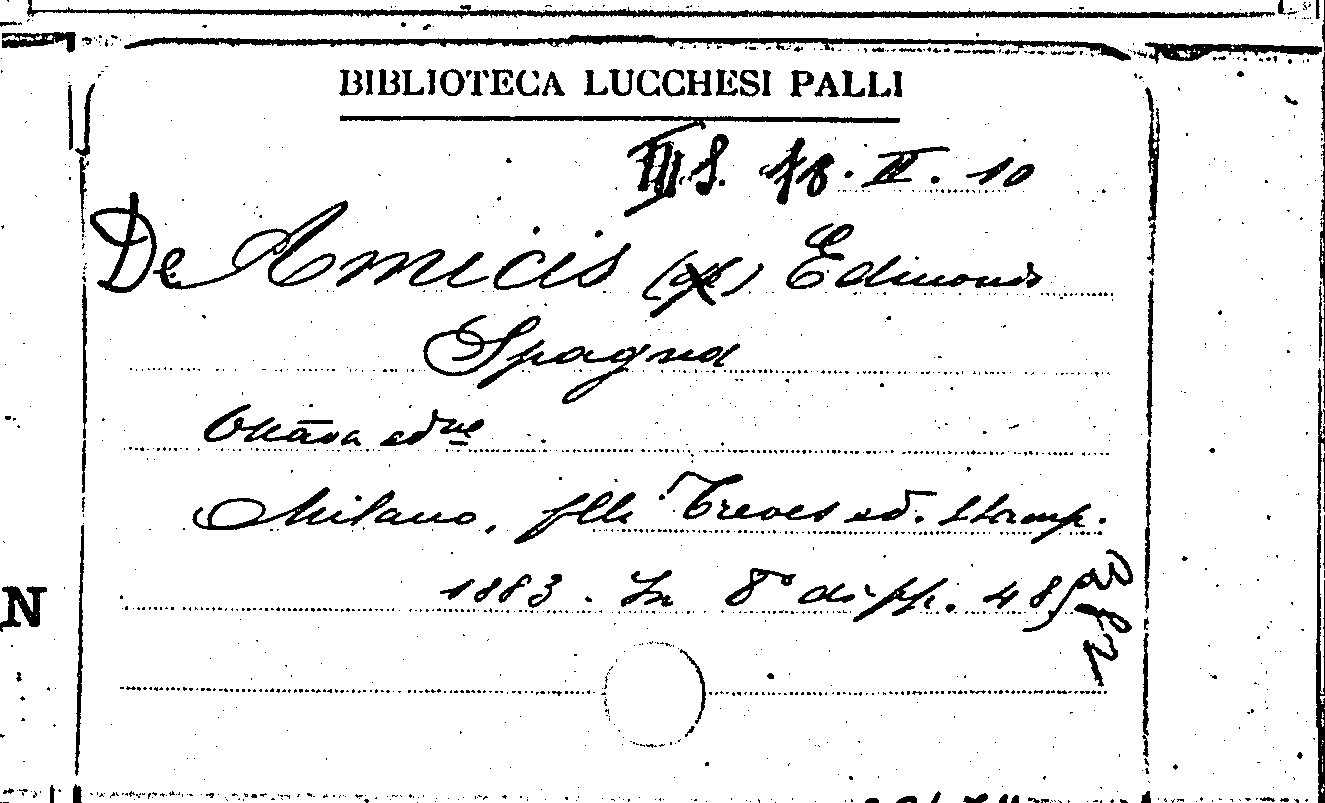 BIBLIOTECA LUCCHESI PALLI
III S. 18. II. 10
De Amicis (de) Edmondo
Spagna
Ottava ed.ne
Milano, flli Treves ed. stamp.
1883. In 8° di pp. 485
N